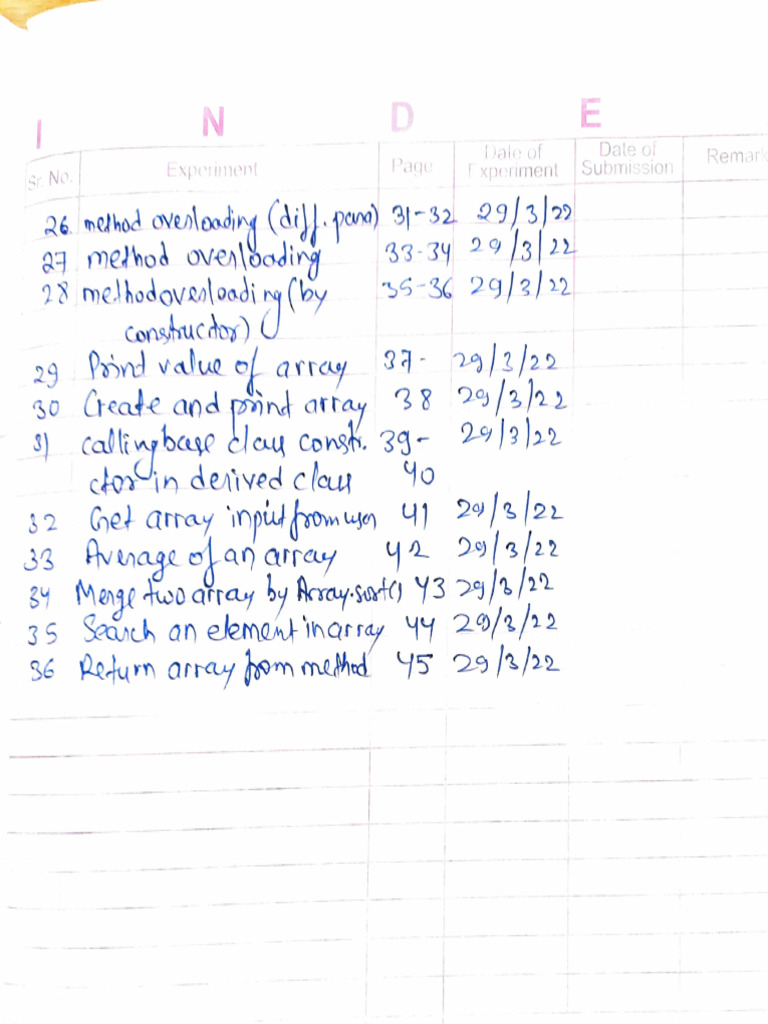 I N D E
Sr. No. Experiment Page Date of Experiment Date of Submission Remark
26. method overloading (diff. para) 31-32 29/3/22
27 method overloading 33-34 29/3/22
28 method overloading (by 35-36 29/3/22
constructor)
29 Print value of array 37- 29/3/22
30 Create and print array 38 29/3/22
31 calling base class constr. 39- 29/3/22
ctor in derived class 40
32 Get array input from user 41 29/3/22
33 Average of an array 42 29/3/22
34 Merge two array by Array.sort() 43 29/3/22
35 Search an element in array 44 29/3/22
36 Return array from method 45 29/3/22